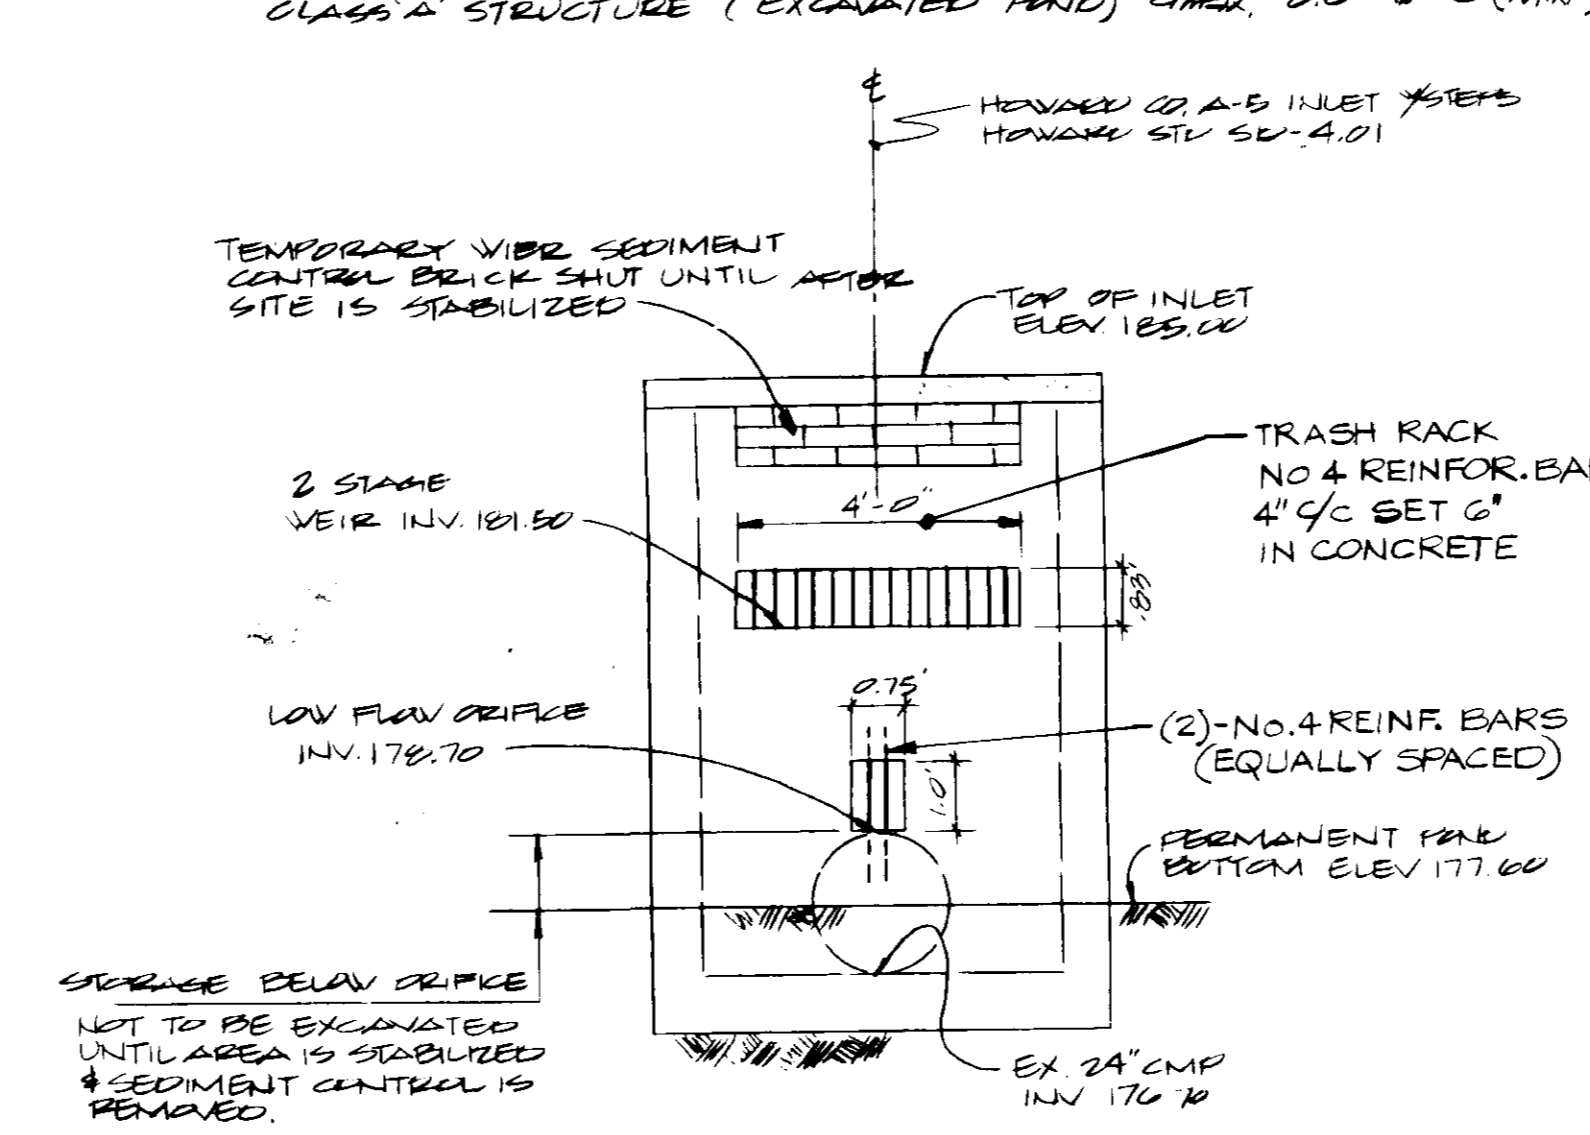 CLASS 'A' STRUCTURE (EXCAVATED POND)
℄
HOWARD CO. A-5 INLET W/STEPS
HOWARD STD SD-4.01
TEMPORARY WIER SEDIMENT
CONTROL BRICK SHUT UNTIL AFTER
SITE IS STABILIZED
TOP OF INLET
ELEV. 185.00
TRASH RACK
NO 4 REINFOR. BA
4" C/C SET 6"
IN CONCRETE
2 STAGE
WEIR INV. 181.50
4'-0"
.83'
0.75'
LOW FLOW ORIFICE
INV. 178.70
(2)-No. 4 REINF. BARS
(EQUALLY SPACED)
1.0'
PERMANENT POND
BOTTOM ELEV 177.60
STORAGE BELOW ORIFICE
NOT TO BE EXCAVATED
UNTIL AREA IS STABILIZED
& SEDIMENT CONTROL IS
REMOVED.
EX. 24" CMP
INV 176.70